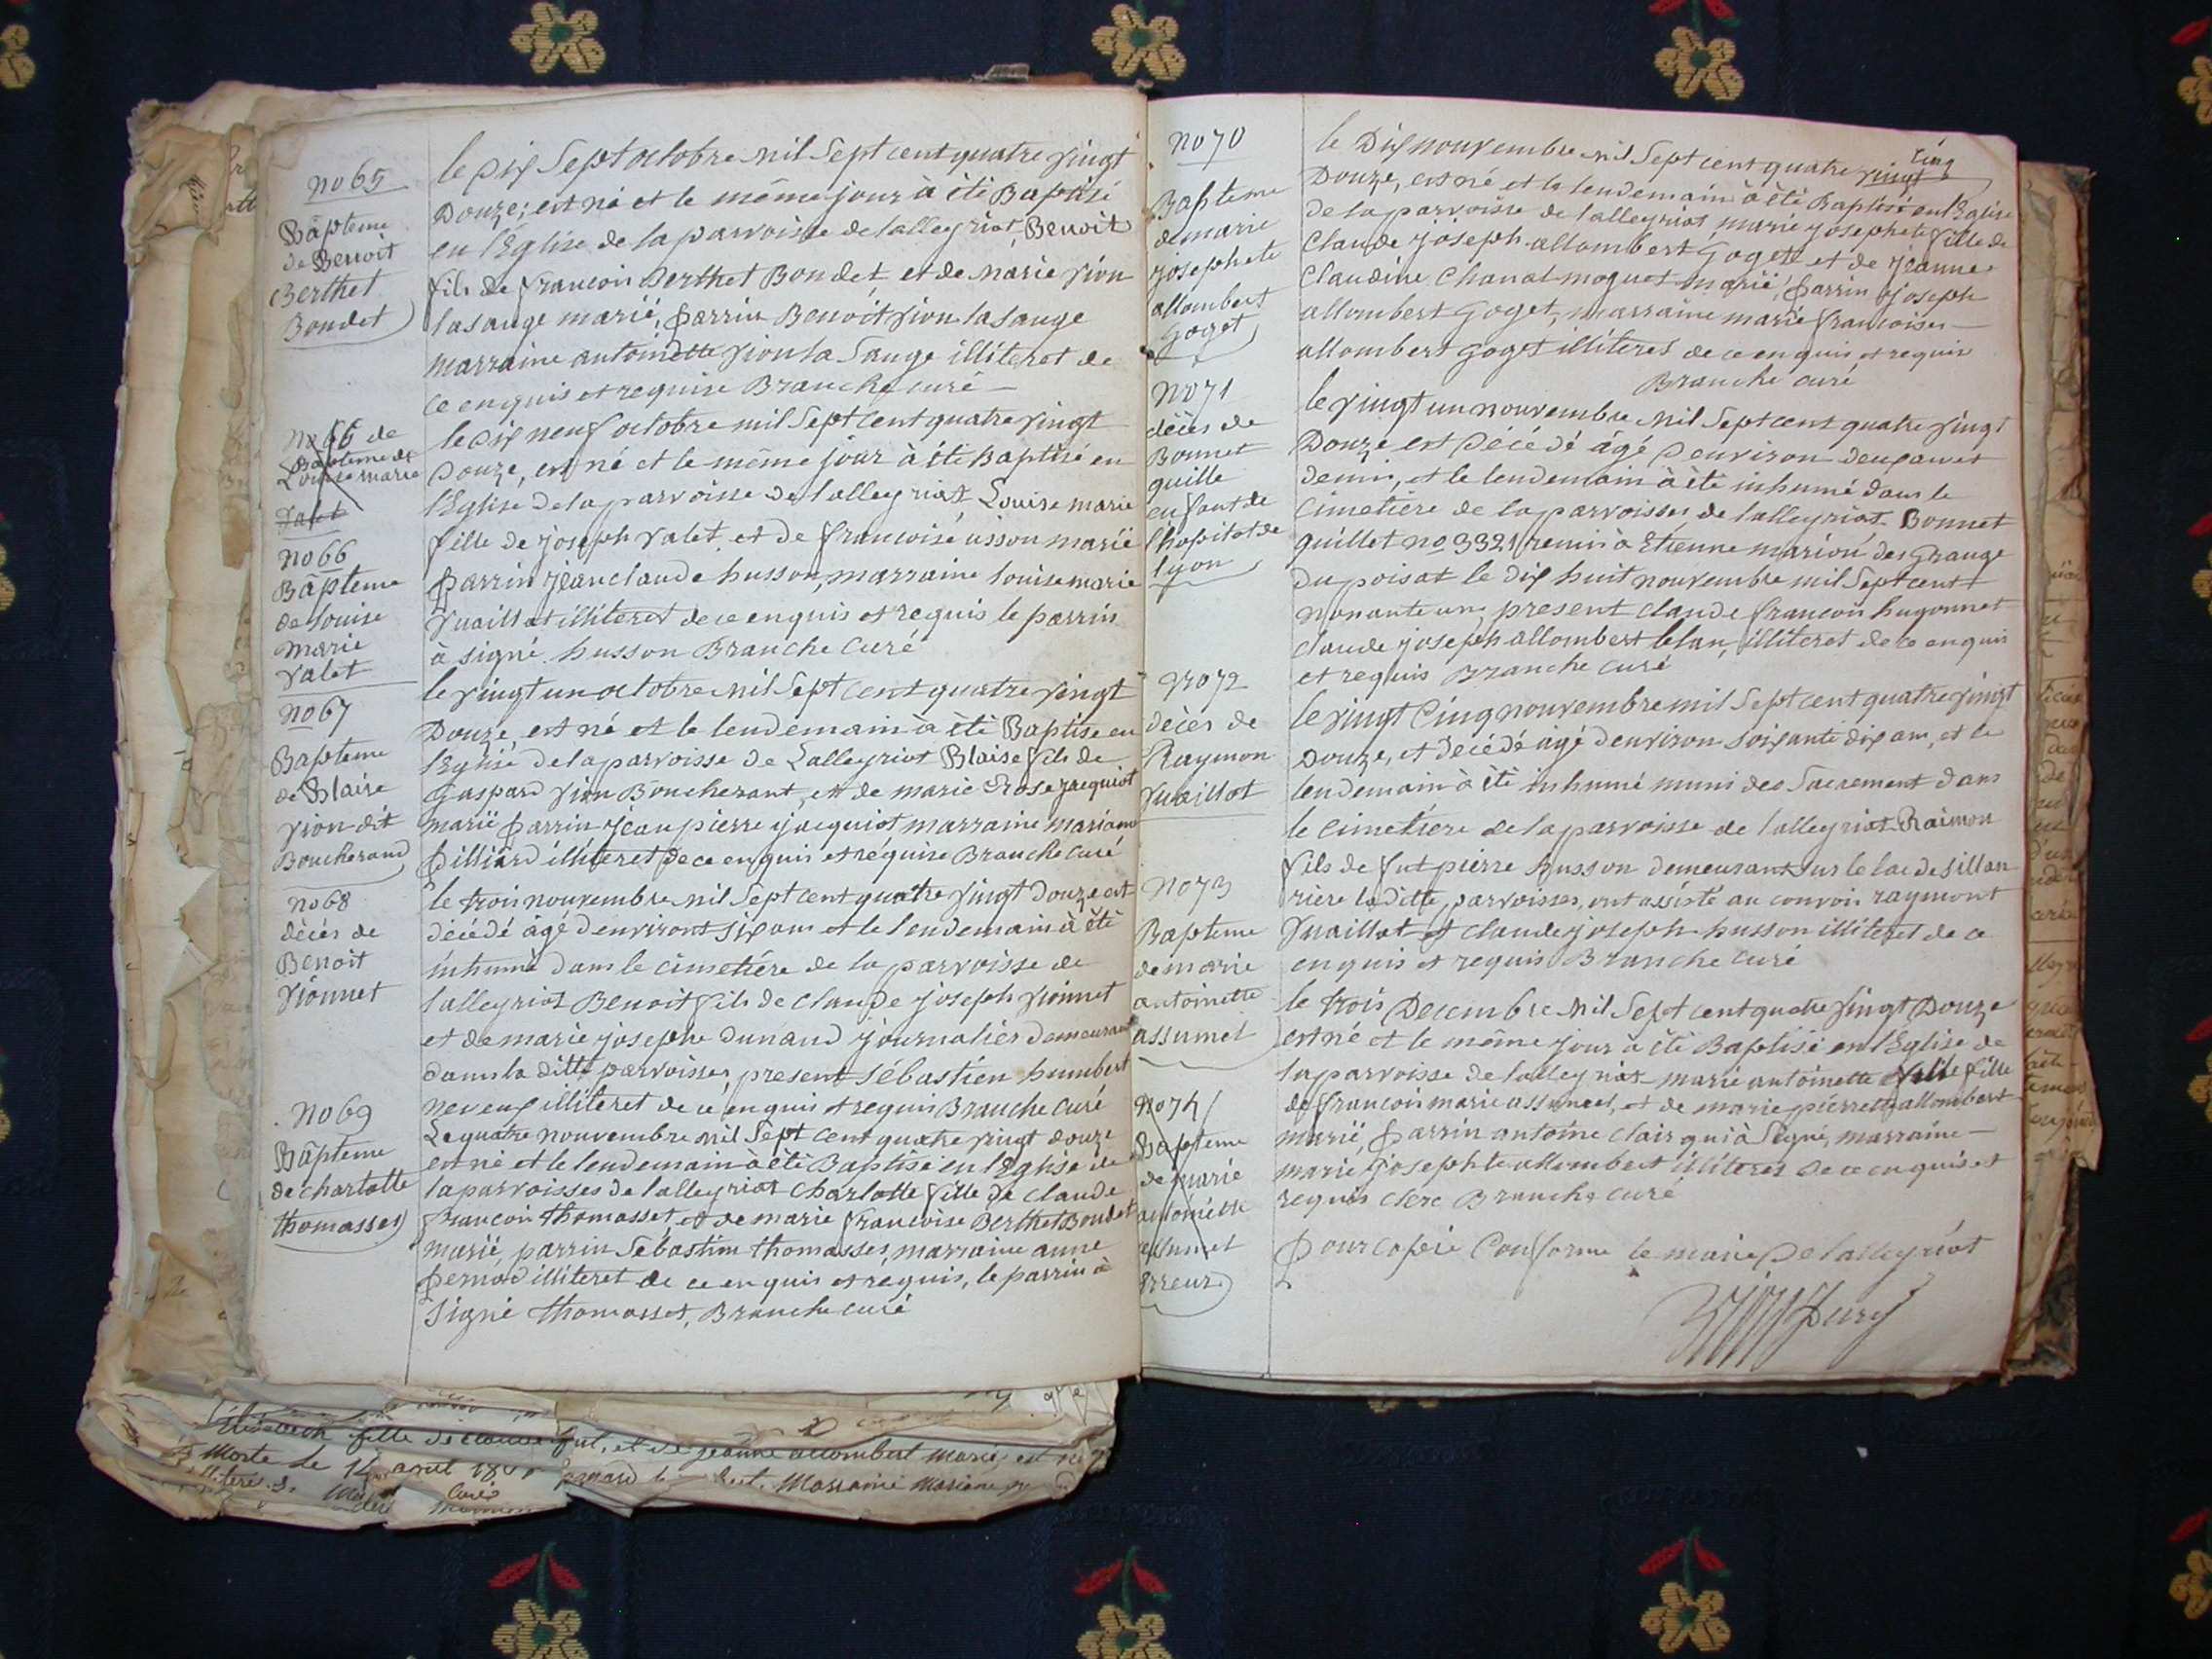 no 65
Bâpteme
de Benoit
Berthet
Bondet
le dix sept octobre mil sept cent quatre vingt
Douze, est né et le même jour à été Baptisé
en l'Eglise de la parroisse de lalleyriat, Benoit
fils de francois Berthet Bondet, et de marie vion
lasauge marié, parrin Benoit vion lasauge
marraine antoinette vion la sauge illiteret de
ce enquis et requise Branche curé
no 66 de
Bapteme de
Louise marie
Valet
le dix neuf octobre mil sept cent quatre vingt
Douze, est né et le même jour à été Baptisé en
l'Eglise de la parroisse de lalleyriat, Louise marie
fille de joseph valet, et de francoise usson marié
parrin jean claude husson, marraine louise marie
vuaillat illiteret de ce enquis et requis le parrin
à signé husson Branche Curé
no 66
Bâpteme
de louise
marie
valet
no 67
Bapteme
de Blaise
vion dit
Boucherand
le vingt un octobre mil sept cent quatre vingt
Douze est né et le lendemain à été Baptise en
l'Eglise de la parroisse de Lalleyriat Blaise fils de
Gaspard vion Boucherant, et de marie Rose jacquiot
marié parrin jean pierre jacquiot marraine mariane
pilliard illiteret de ce enquis et réquise Branche Curé
no 68
décés de
Benoit
vionnet
le trois nouvembre mil sept cent quatre vingt douze est
décédé âgé d'environt six ans et le lendemain à été
inhumé dans le cimetiére de la parroisse de
lalleyriat Benoit fils de Claude joseph vionnet
et de marie josephe dunand journalier demeurant
dans la ditte parroisse, present sébastien humbert
neveux illiteret de ce enquis et requis Branche Curé
no 69
Bâpteme
de charlotte
thomasset
Le quatre nouvembre mil sept cent quatre vingt douze
est né et le lendemain à été Baptisé en l'Eglise de
la parroisses de lalleyriat Charlotte fille de Claude
francois thomasset, et de marie francoise Berthet Bondet
marié, parrin Sebastien thomasset, marraine anne
pernod illiteret de ce enquis et réquis, le parrin à
signé thomasset, Branche curé
no 70
Bapteme
de marie
josephete
allombert
Goget
le Dix nouvembre mil sept cent quatre vingt
Douze, est né et le lendemain à été Baptisé en l'Eglise
de la parroisse de lalleyriat marie josephete fille de
Claude joseph allombert Goget et de jeanne
Claudine Chanal moguet marié, parrin joseph
allombert Goget, marraine marie francoise
allombert Goget illiteret de ce enquis et requis
Branche curé
no 71
décès de
Bonnet
guille
enfant de
l'hopital de
lyon
le vingt un nouvembre mil sept cent quatre vingt
Douze est décédé âgé d'environ deux an et
demi, et le lendemain à été inhumé dans le
cimetiére de la parroisses de lalleyriat Bonnet
guillet no 3321 remis à Etienne marion des Grange
du poisat le dix huit nouvembre mil sept cent
nonante un, present claude francois hugonnet
claude joseph allombert blan, illiteret de ce enquis
et requis Branche curé
no 72
décès de
Raymon
vuaillat
le vingt Cinq nouvembre mil sept cent quatre vingt
Douze, est décédé âgé d'environ soixante dix an, et le
lendemain à été inhumé muni des sacrement dans
le cimetiére de la parroisse de lalleyriat Raimon
fils de fut pierre husson demeurant sur le lac de sillan
riére la ditte parroisses, ont assisté au convoi raymont
vuaillat et claude joseph husson illiteret de ce
enquis et requis Branche curé
no 73
Bapteme
de marie
antoinette
assumel
le trois Decembre mil sept cent quatre vingt Douze
est né et le même jour à été Baptisé en l'Eglise de
la parroisse de lalleyriat marie antoinette fille
de francois marie assumel, et de marie pierrette allombert
marié, parrin antoine clair qui à signé, marraine
marie josephte allombert illiteret de ce enquis et
requis clerc Branche curé
no 74
Bapteme
de marie
antoinette
assumel
erreur
pour copie Conforme le maire de lalleyriat